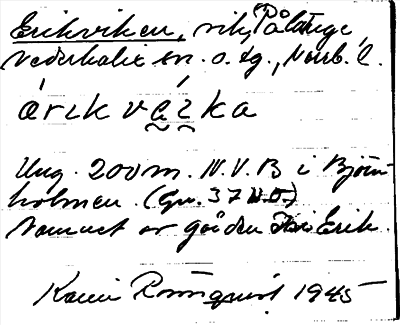 Erikviken, vik, Pålänge,
Nederkalix sn. o. tg., Norrb. l.
árɩkvá̰ɩ́ka
Ung. 200 m. N.V. B i Björn-
holmen. (Gr. 37 N.O.)
Namnet av gården Erik.
Karin Rönnquist 1945